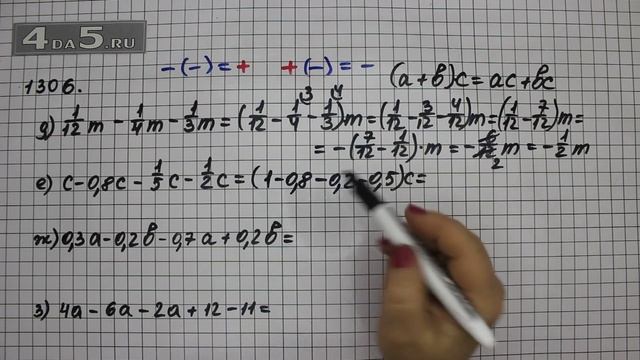 4DA5.RU
-(-)=+ +(-)=-
1306. (a+b)c=ac+bc
д) 1/12 m - 1/4 m - 1/3 m = (1/12 - 1/4 ³ - 1/3 ⁴)m = (1/12 - 3/12 - 4/12)m = (1/12 - 7/12)m =
= -(7/12 - 1/12)·m = -6/12 2 m = -1/2 m
е) c-0,8c - 1/5 c - 1/2 c = (1-0,8-0,2-0,5)c=
ж) 0,3a-0,2b-0,7a+0,2b=
з) 4a-6a-2a+12-11=